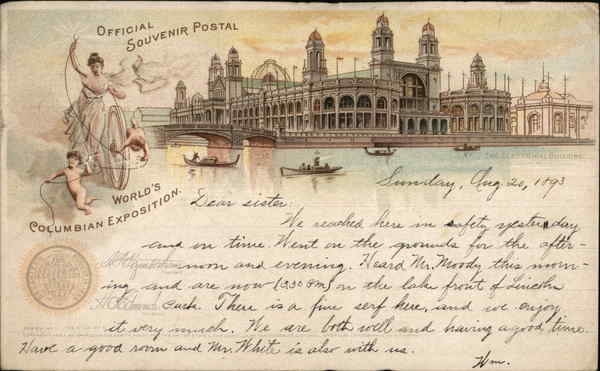 OFFICIAL
SOUVENIR POSTAL
WORLD'S
COLUMBIAN EXPOSITION.
THE ELECTRICAL BUILDING.
Sunday, Aug 20, 1893
Dear sister:
We reached here in safety yesterday
and on time. Went on the grounds for the after-
noon and evening. Heard Mr. Moody this morn-
ing and are now (3:30 P.M.) on the lake front of Lincoln
Park. There is a fine serf here, and we enjoy
it very much. We are both well and having a good time.
Have a good room and Mr. White is also with us.
Wm.